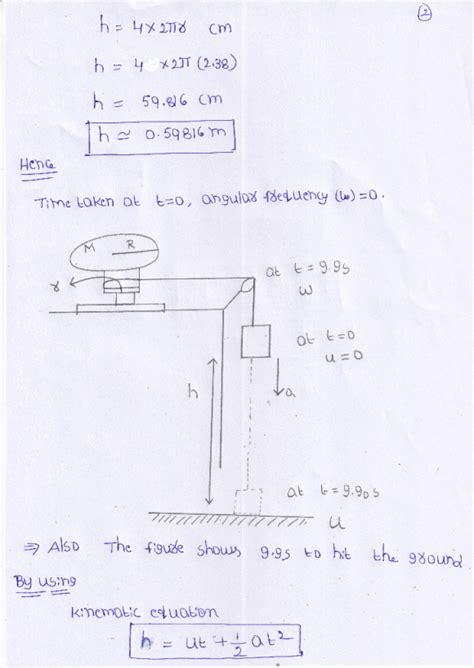 2
h = 4×2πr cm
h = 4 ×2π (2.38)
h = 59.816 cm
h ≃ 0.59816 m
Hence
Time taken at t=0, angular frequency (ω) = 0.
M R
r
at t = 9.9s
ω
at t=0
u = 0
h
a
at t = 9.90s
u
⇒ Also The figure shows 9.9s to hit the ground
By using
kinematic equation
h = ut + 1/2 at²